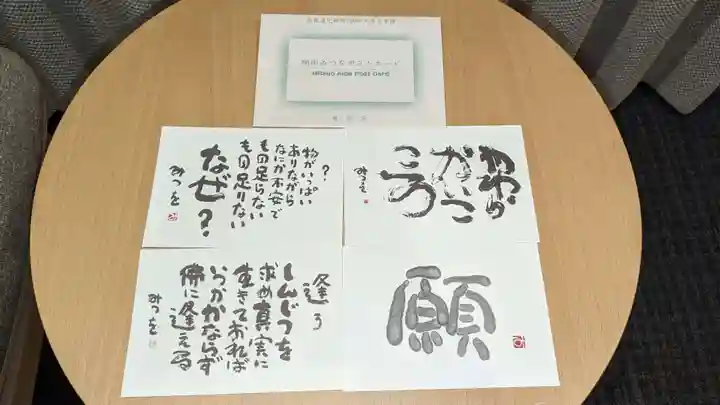 相田みつをポストカード
MITSUO AIDA POST CARD
？
物がいっぱい
ありながら
なにか不安で
もの足らない
もの足りない
なぜ？
みつを
やわらかい
こころ
みつを
逢う
しんじつを
求め真実に
生きておれば
いつかかならず
佛に逢える
みつを
願